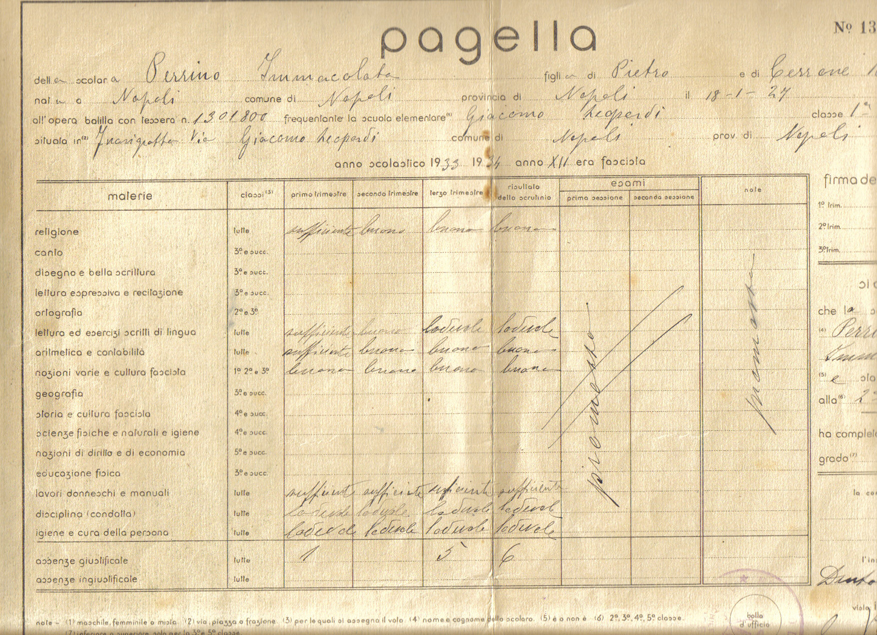 pagella
Nº 13
della scolara Perrino Immacolata figlia di Pietro e di Cerrone
nata a Napoli comune di Napoli provincia di Napoli il 18-1-27
all'opera balilla con tessera n. 1301800 frequentante la scuola elementare⁽¹⁾ Giacomo Leopardi classe 1ª
situata in⁽²⁾ Fuorigrotta Via Giacomo Leopardi comune di Napoli prov. di Napoli
anno scolastico 1933 1934 anno XII era fascista
materie classi⁽³⁾ primo trimestre secondo trimestre terzo trimestre risultato dello scrutinio esami prima sessione seconda sessione note
firma de
religione tutte sufficiente buono buono buono
1º trim.
2º trim.
3º trim.
canto 3ª e succ.
disegno e bella scrittura 3ª e succ.
lettura espressiva e recitazione 3ª e succ.
ortografia 2ª e 3ª
lettura ed esercizi scritti di lingua tutte sufficiente buono lodevole lodevole
aritmetica e contabilità tutte sufficiente buono buono buono
nozioni varie e cultura fascista 1ª 2ª e 3ª buono buono buono buono
geografia 3ª e succ.
storia e cultura fascista 4ª e succ.
scienze fisiche e naturali e igiene 4ª e succ.
nozioni di diritto e di economia 5ª e succ.
educazione fisica 3ª e succ.
lavori donneschi e manuali tutte sufficiente sufficiente sufficiente sufficiente
disciplina (condotta) tutte lodevole lodevole lodevole lodevole
igiene e cura della persona tutte lodevole lodevole lodevole lodevole
assenze giustificate tutte 1 5 6
assenze ingiustificate tutte
promossa
promossa
si a
che la s
Perri
Imm
è sta
alla⁽⁶⁾ 2ª
ha complet
grado⁽⁷⁾
la co
l'in
bollo
d'ufficio
note - (1) maschile, femminile o mista. (2) via, piazza o frazione. (3) per le quali si assegna il voto. (4) nome e cognome dello scolaro. (5) è o non è. (6) 2ª, 3ª, 4ª, 5ª classe.